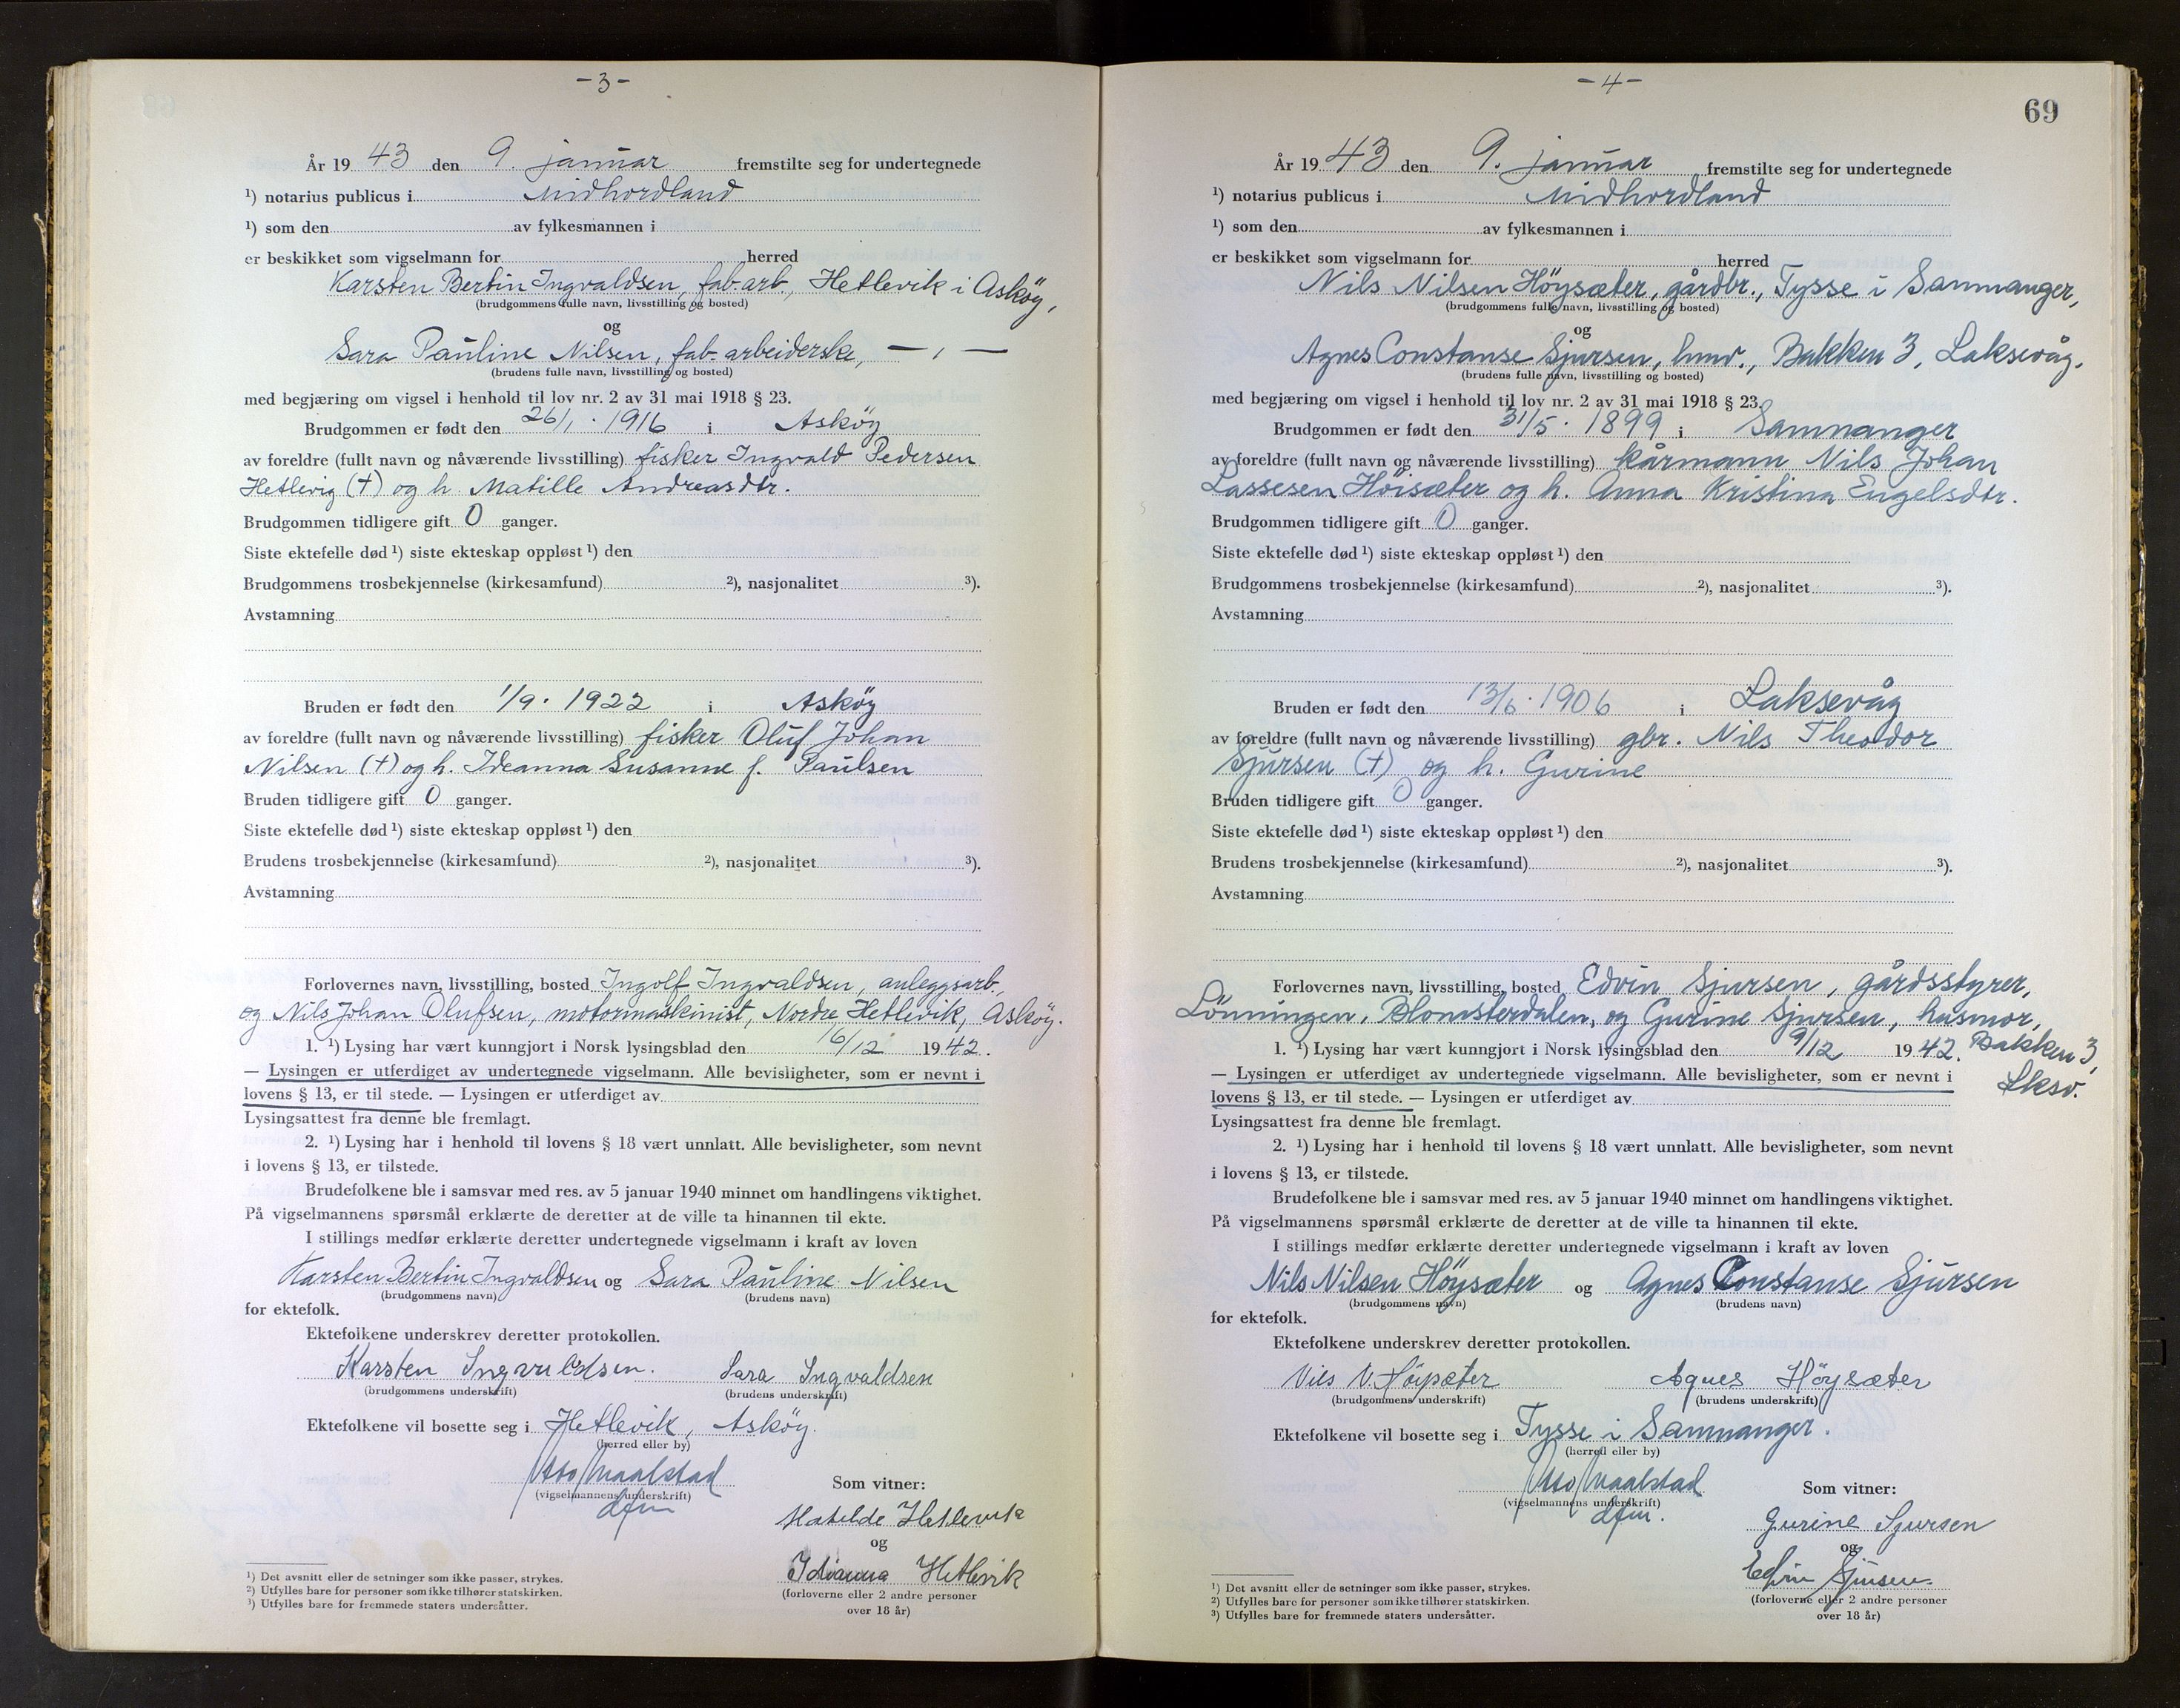 - 3 -
År 19 43 den 9. januar fremstilte seg for undertegnede
¹) notarius publicus i Midhordland
¹) som den av fylkesmannen i
er beskikket som vigselmann for herred
Karsten Bertin Ingvaldsen, fab-arb., Hetlevik i Asköy,
(brudgommens fulle navn, livsstilling og bosted)
og
Sara Pauline Nilsen, fab-arbeiderske, — , —
(brudens fulle navn, livsstilling og bosted)
med begjæring om vigsel i henhold til lov nr. 2 av 31 mai 1918 § 23.
Brudgommen er født den 26/1. 1916 i Asköy
av foreldre (fullt navn og nåværende livsstilling) fisker Ingvald Pedersen
Hetlevig (†) og h. Matille Andreasdtr.
Brudgommen tidligere gift 0 ganger.
Siste ektefelle død ¹) siste ekteskap oppløst ¹) den
Brudgommens trosbekjennelse (kirkesamfund) ²), nasjonalitet ³).
Avstamning
Bruden er født den 1/9. 1922 i Asköy
av foreldre (fullt navn og nåværende livsstilling) fisker Oluf Johan
Nilsen (†) og h. Ideanna Susanne f. Paulsen
Bruden tidligere gift 0 ganger.
Siste ektefelle død ¹) siste ekteskap oppløst ¹) den
Brudens trosbekjennelse (kirkesamfund) ²), nasjonalitet ³).
Avstamning
Forlovernes navn, livsstilling, bosted Ingolf Ingvaldsen, anleggsarb.,
og Nils Johan Olufsen, motormaskinist, Nordre Hetlevik, Asköy.
1. ¹) Lysing har vært kunngjort i Norsk lysingsblad den 16/12 1942.
— Lysingen er utferdiget av undertegnede vigselmann. Alle bevisligheter, som er nevnt i
lovens § 13, er til stede. — Lysingen er utferdiget av
Lysingsattest fra denne ble fremlagt.
2. ¹) Lysing har i henhold til lovens § 18 vært unnlatt. Alle bevisligheter, som nevnt
i lovens § 13, er tilstede.
Brudefolkene ble i samsvar med res. av 5 januar 1940 minnet om handlingens viktighet.
På vigselmannens spørsmål erklærte de deretter at de ville ta hinannen til ekte.
I stillings medfør erklærte deretter undertegnede vigselmann i kraft av loven
Karsten Bertin Ingvaldsen og Sara Pauline Nilsen
(brudgommens navn) (brudens navn)
for ektefolk.
Ektefolkene underskrev deretter protokollen.
Karsten Ingvaldsen. Sara Ingvaldsen
(brudgommens underskrift) (brudens underskrift)
Ektefolkene vil bosette seg i Hetlevik, Asköy.
(herred eller by)
(vigselmannens underskrift)
dfm
Som vitner:
Matilde Hetlevik
og
Idianna Hetlevik
(forloverne eller 2 andre personer
over 18 år)
¹) Det avsnitt eller de setninger som ikke passer, strykes.
²) Utfylles bare for personer som ikke tilhører statskirken.
³) Utfylles bare for fremmede staters undersåtter.
- 4 -
69
År 19 43 den 9. januar fremstilte seg for undertegnede
¹) notarius publicus i Midhordland
¹) som den av fylkesmannen i
er beskikket som vigselmann for herred
Nils Nilsen Höysæter, gårdbr., Tysse i Samnanger,
(brudgommens fulle navn, livsstilling og bosted)
og
Agnes Constanse Sjursen, husv., Bakken 3, Laksevåg.
(brudens fulle navn, livsstilling og bosted)
med begjæring om vigsel i henhold til lov nr. 2 av 31 mai 1918 § 23.
Brudgommen er født den 31/5. 1899 i Samnanger
av foreldre (fullt navn og nåværende livsstilling) kårmann Nils Johan
Lassesen Höisæter og h. Anna Kristina Engelsdtr.
Brudgommen tidligere gift 0 ganger.
Siste ektefelle død ¹) siste ekteskap oppløst ¹) den
Brudgommens trosbekjennelse (kirkesamfund) ²), nasjonalitet ³).
Avstamning
Bruden er født den 13/6. 1906 i Laksevåg
av foreldre (fullt navn og nåværende livsstilling) gbr. Nils Theodor
Sjursen (†) og h. Gurine
Bruden tidligere gift 0 ganger.
Siste ektefelle død ¹) siste ekteskap oppløst ¹) den
Brudens trosbekjennelse (kirkesamfund) ²), nasjonalitet ³).
Avstamning
Forlovernes navn, livsstilling, bosted Edvin Sjursen, gårdsstyrer,
Lönningen, Blomsterdalen, og Gurine Sjursen, husmor,
1. ¹) Lysing har vært kunngjort i Norsk lysingsblad den 9/12 1942. Bakken 3,
Lksv.
— Lysingen er utferdiget av undertegnede vigselmann. Alle bevisligheter, som er nevnt i
lovens § 13, er til stede. — Lysingen er utferdiget av
Lysingsattest fra denne ble fremlagt.
2. ¹) Lysing har i henhold til lovens § 18 vært unnlatt. Alle bevisligheter, som nevnt
i lovens § 13, er tilstede.
Brudefolkene ble i samsvar med res. av 5 januar 1940 minnet om handlingens viktighet.
På vigselmannens spørsmål erklærte de deretter at de ville ta hinannen til ekte.
I stillings medfør erklærte deretter undertegnede vigselmann i kraft av loven
Nils Nilsen Höysæter og Agnes Constanse Sjursen
(brudgommens navn) (brudens navn)
for ektefolk.
Ektefolkene underskrev deretter protokollen.
Nils N. Höisæter Agnes Höysæter
(brudgommens underskrift) (brudens underskrift)
Ektefolkene vil bosette seg i Tysse i Samnanger.
(herred eller by)
(vigselmannens underskrift)
dfm.
Som vitner:
Gurine Sjursen
og
Edvin Sjursen.
(forloverne eller 2 andre personer
over 18 år)
¹) Det avsnitt eller de setninger som ikke passer, strykes.
²) Utfylles bare for personer som ikke tilhører statskirken.
³) Utfylles bare for fremmede staters undersåtter.